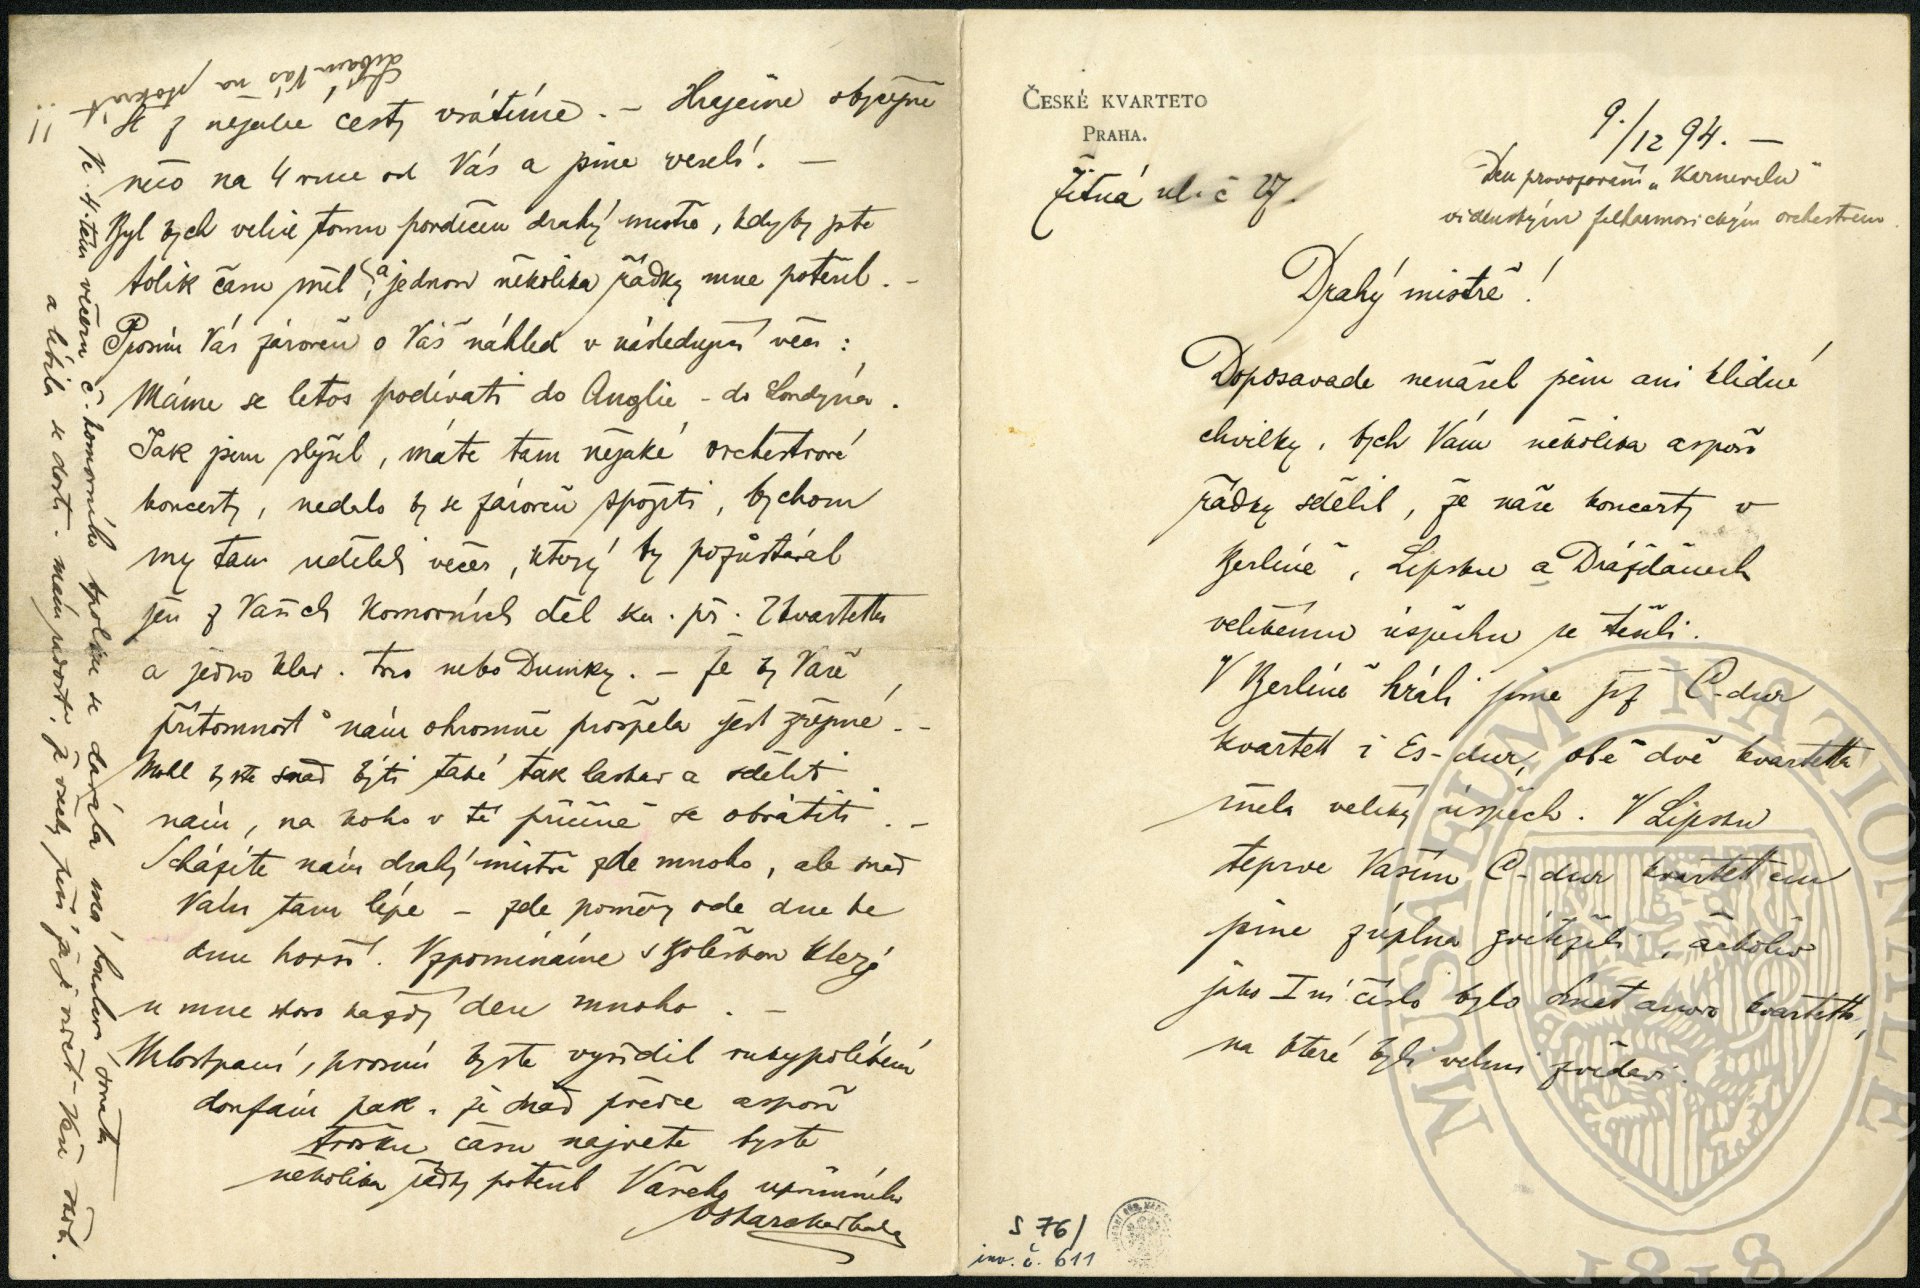 ČESKÉ KVARTETO
PRAHA.
Žitná ul. č 27.
9./12 94. –
Den provozování „Karnevalu"
vídeňským filharmonickým orchestrem.
Drahý mistře!
Doposavade nenašel jsem ani klidné
chvilky, bych Vám několika aspoň
řádky sdělil, že naše koncerty v
Berlíně, Lipsku a Drážďanech
velikému úspěchu se těšili.
V Berlíně hráli jsme již C-dur
kvartett i Es-dur, obě dvě kvartetta
měla veliký úspěch. V Lipsku
teprve Vašim C-dur kvartettem
jsme zúplna zvítězili, ačkoliv
jako I ní číslo bylo Smetanovo kvartetto,
na které byli velmi zvědavi.
se z nějaké cesty vrátíme. – Hrajeme obyčejně
něco na 4 ruce od Vás a jsme veselí. –
Byl bych velice tomu povděčen drahý mistře, kdyby jste
tolik času měl, a jednou několika řádky mne potěšil. –
Prosím Vás zároveň o Váš náhled v následující věci:
Máme se letos podívati do Anglie – do Londýna.
Jak jsem slyšel, máte tam nějaké orchestrové
koncerty, nedalo by se zároveň spojiti, bychom
my tam udělali večer, který by pozůstával
jen z Vašich komorních děl ku. př. 2 kvartetta
a jedno klav. trio nebo Dumky. – Že by Vaše
přítomnost nám ohromně prospěla jest zřejmé. –
Mohl byste snad býti také tak laskav a sděliti
nám, na koho v té příčině se obrátiti. –
Scházíte nám drahý mistře zde mnoho, ale snad
Vám tam lépe – zde poměry ode dne ke
dnu horší. Vzpomínáme s
u mne skoro každý den mnoho. –
Milostpaní, prosím byste vyřídil rukypolíbení
doufám pak, že snad přece aspoň
trošku času najdete byste
několika řádky potěšil Vašeho upřímného
Oskara Nedbala
K. 4. tému večeru č. komorního spolku se dávala má houslová sonata
a líbila se dosti. mám radost, že
Líbám Vás na stokrát
!!
S 76/
inv. č. 611
MUSAEUM NATIONALE
1818